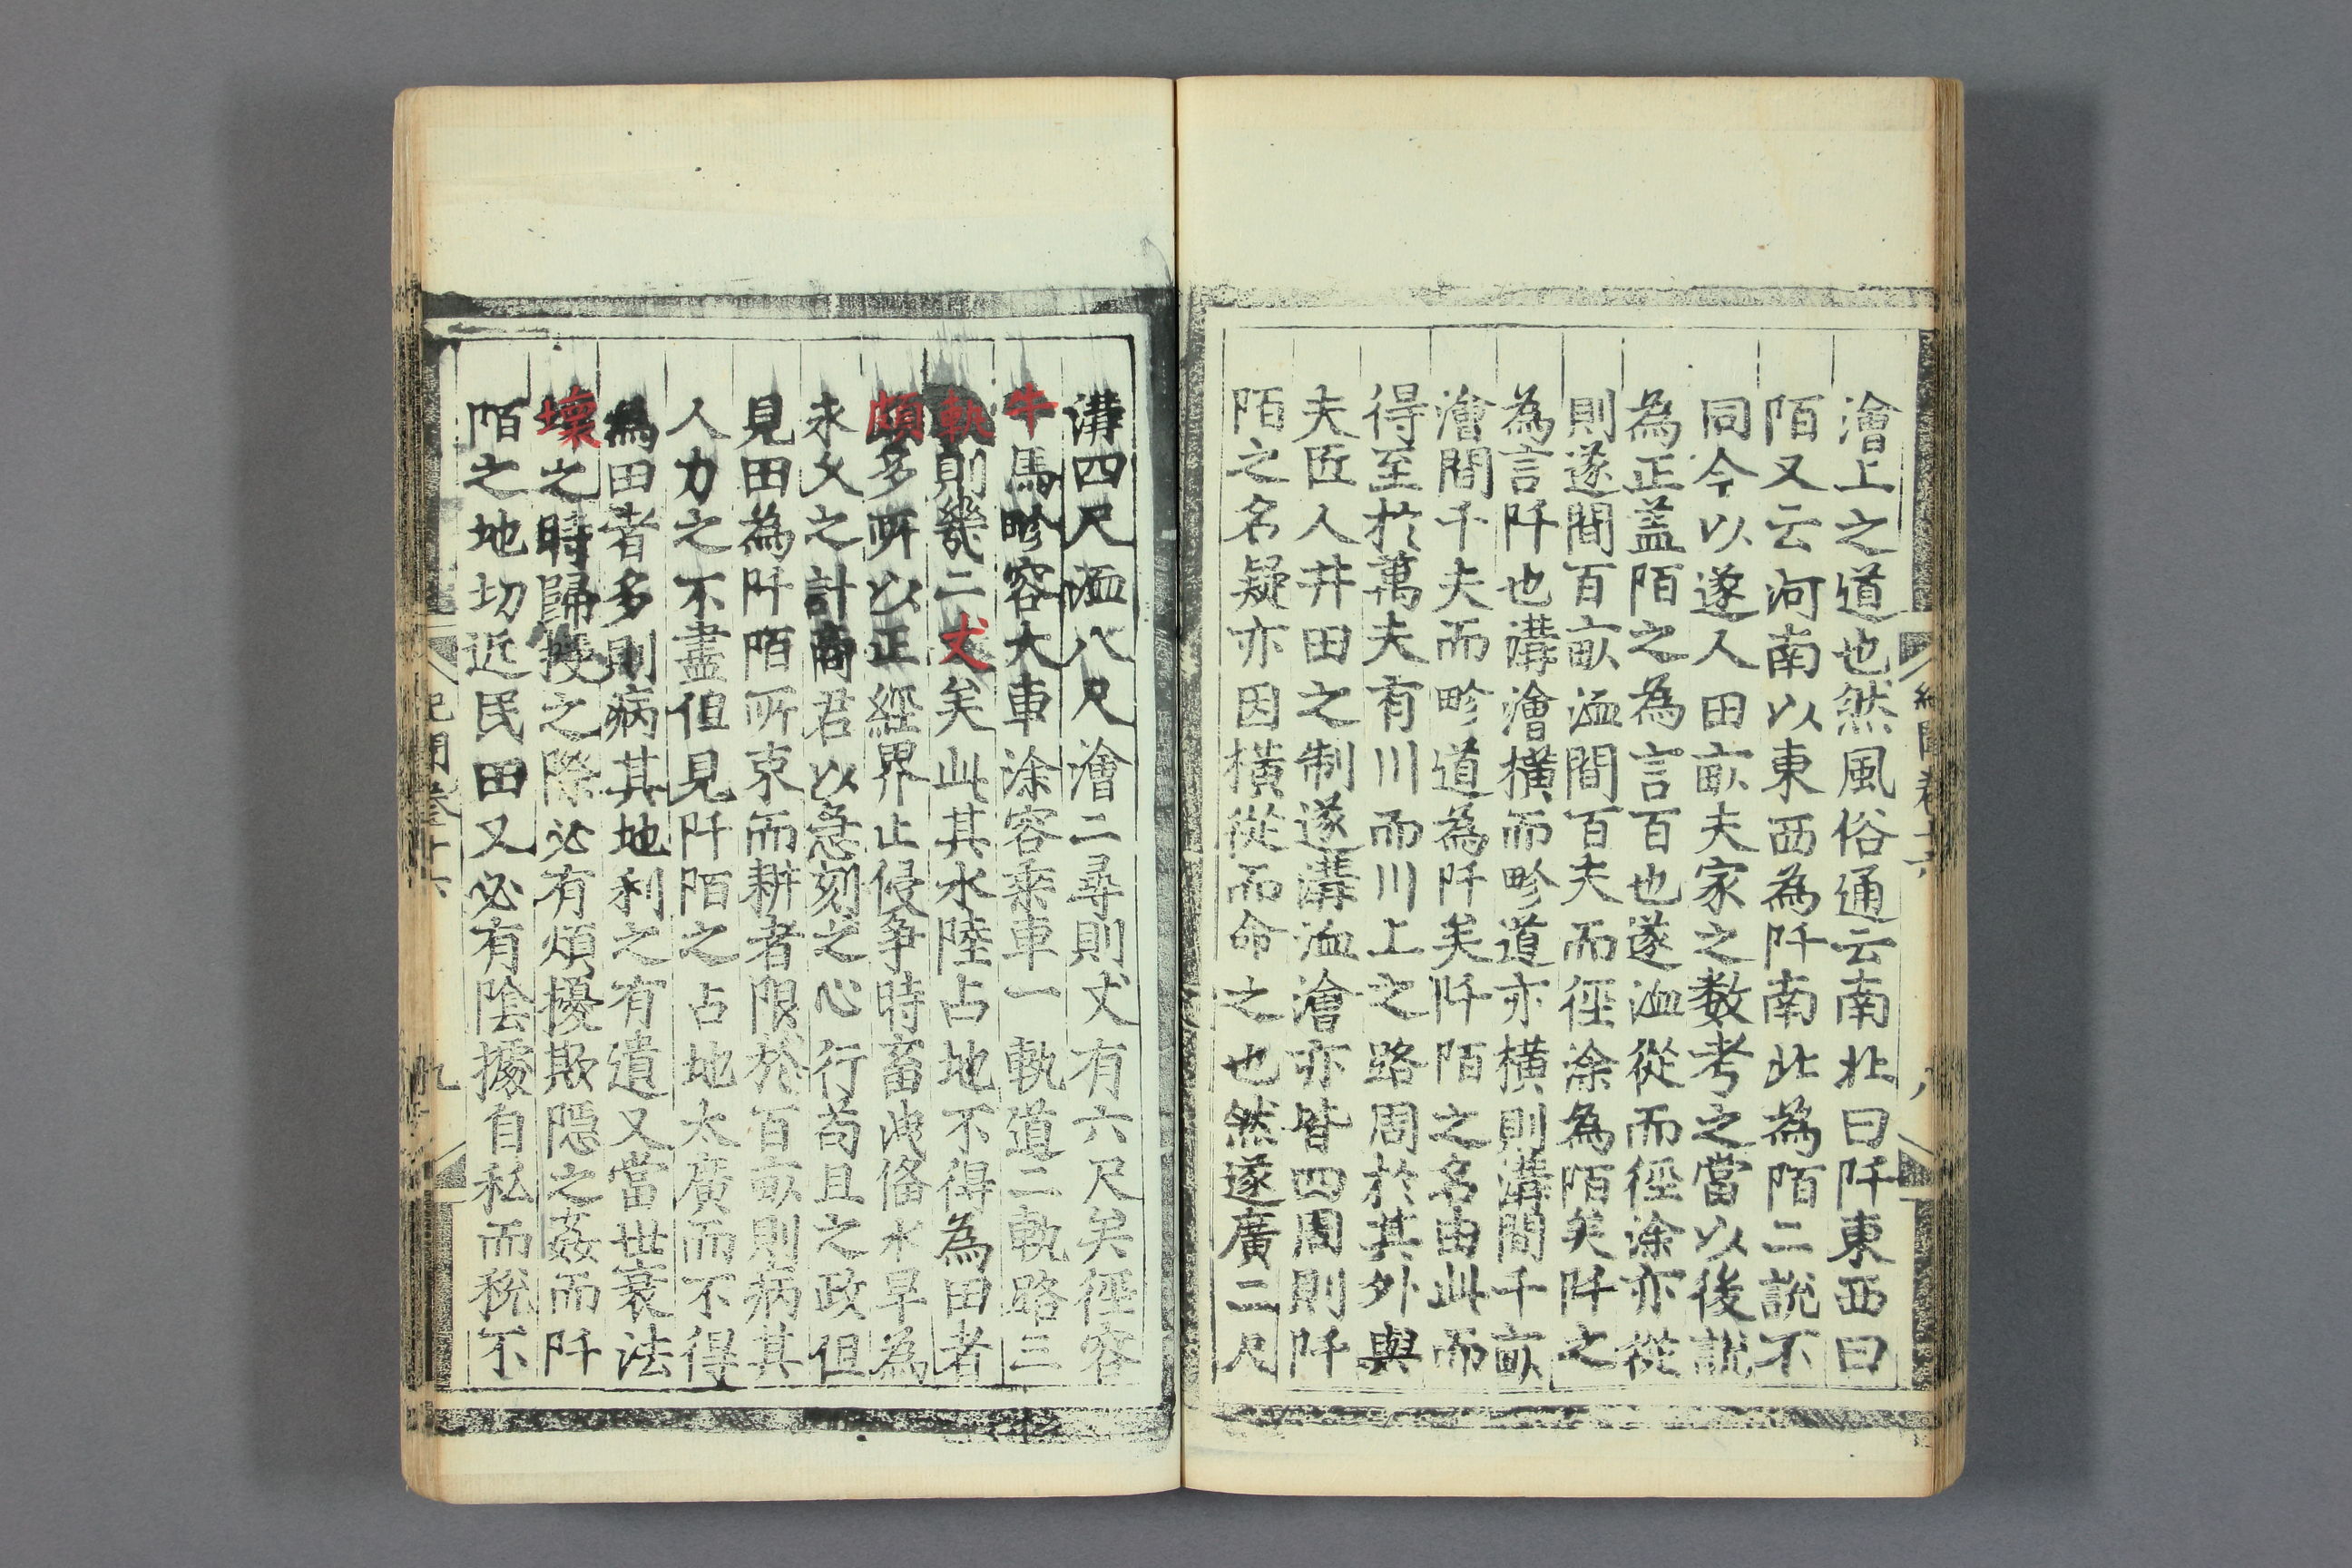 澮上之道也然風俗通云南北曰阡東西曰
陌又云河南以東西為阡南北為陌二說不
同今以遂人田畝夫家之数考之當以後說
為正蓋陌之為言百也遂洫從而徑涂亦從
則遂間百畝洫間百夫而徑涂為陌矣阡之
為言阡也溝澮橫而畛道亦橫則溝間千畝
澮間千夫而畛道為阡矣阡陌之名由此而
得至於萬夫有川而川上之路周於其外與
夫匠人井田之制遂溝洫澮亦皆四周則阡
陌之名疑亦因橫從而命之也然遂廣二尺
溝四尺洫八尺澮二尋則丈有六尺矣徑容
牛馬畛容大車涂容乘車一軌道二軌路三
軌則幾二丈矣此其水陸占地不得為田者
頗多所以正經界止侵爭時畜洩俻水旱為
永久之計商君以急刻之心行苟且之政但
見田為阡陌所束而耕者限於百畝則病其
人力之不盡但見阡陌之占地太廣而不得
為田者多則病其地利之有遺又當世衰法
壞之時歸授之際必有煩擾欺隱之姦而阡
陌之地切近民田又必有陰據自私而稅不
紀聞卷十六
九